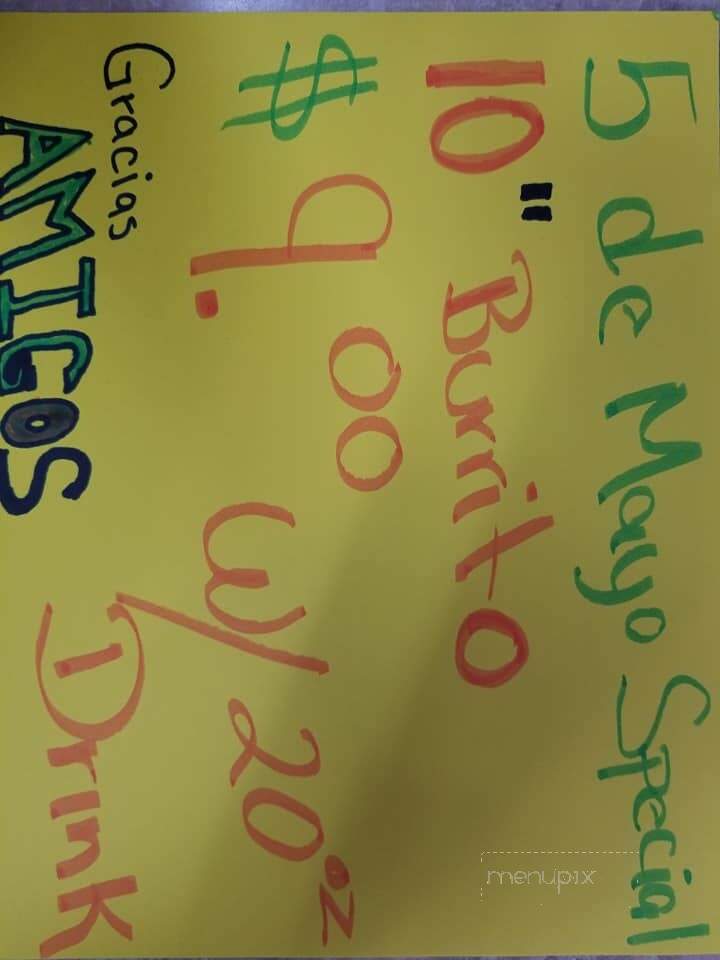 5 de Mayo Special
10" Burrito
$9.00 w/ 20oz
Drink
Gracias
AMIGOS
menupix